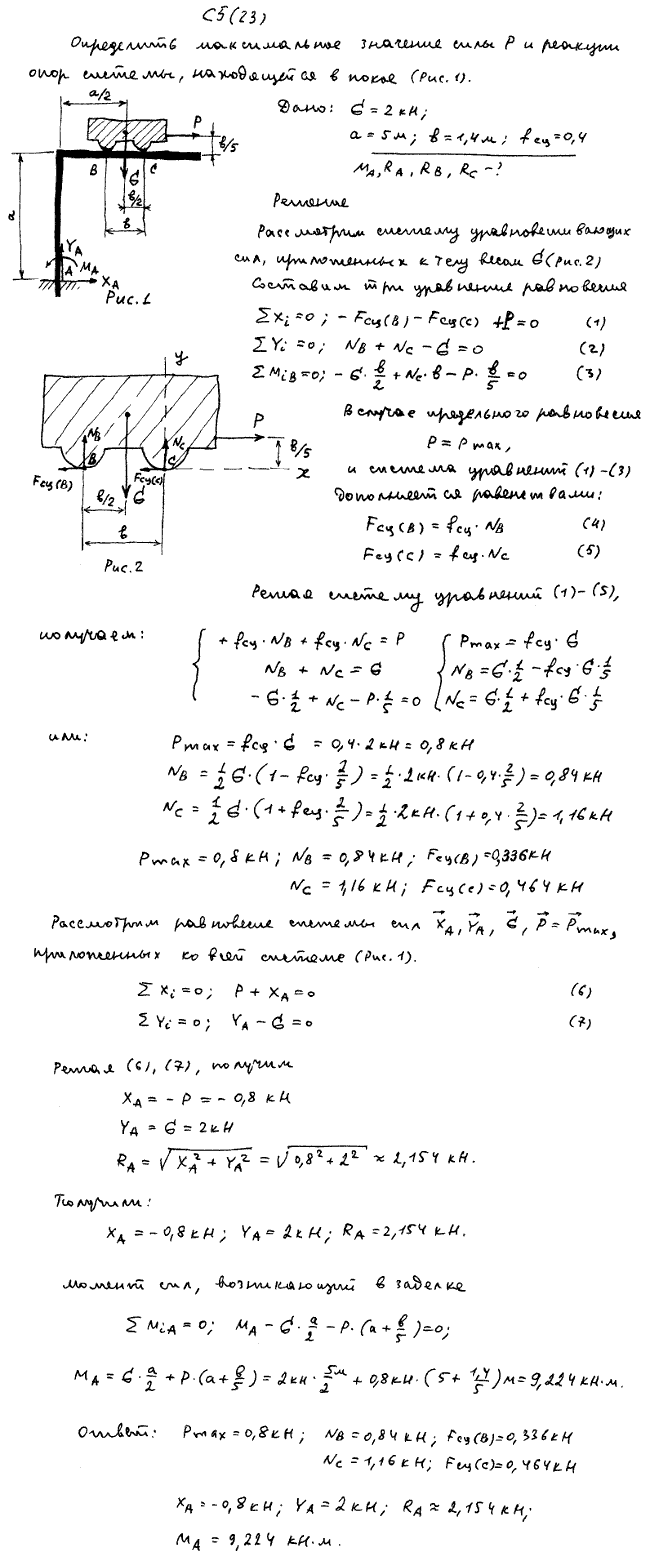 С5(23)
Определить максимальное значение силы P и реакции
опор системы, находящейся в покое (Рис.1).
a/2
P
b/5
B
C
G
b/2
b
a
Y_A
M_A
A
X_A
Рис.1
Дано: G = 2 кН;
a = 5 м; b = 1,4 м; f сц = 0,4
M_A, R_A, R_B, R_C - ?
Решение
Рассмотрим систему уравновешивающих
сил, приложенных к телу весом G (Рис.2)
Составим три уравнения равновесия
∑Xi = 0; - Fсц(B) - Fсц(C) + P = 0 (1)
∑Yi = 0; N_B + N_C - G = 0 (2)
∑M_iB = 0; - G · b/2 + N_C · b - P · b/5 = 0 (3)
y
P
N_B
N_C
B
C
b/5
x
Fсц(B)
Fсц(C)
G
b/2
b
Рис.2
В случае предельного равновесия
P = P max,
и система уравнений (1)-(3)
дополняется равенствами:
Fсц(B) = fсц · N_B (4)
Fсц(C) = fсц · N_C (5)
Решая систему уравнений (1)-(5),
получаем:
+ fсц · N_B + fсц · N_C = P
N_B + N_C = G
- G · 1/2 + N_C - P · 1/5 = 0
Pmax = fсц · G
N_B = G · 1/2 - fсц · G · 1/5
N_C = G · 1/2 + fсц · G · 1/5
или: Pmax = fсц · G = 0,4 · 2 кН = 0,8 кН
N_B = 1/2 G · (1 - fсц · 2/5) = 1/2 · 2кН · (1 - 0,4 · 2/5) = 0,84 кН
N_C = 1/2 G · (1 + fсц · 2/5) = 1/2 · 2кН · (1 + 0,4 · 2/5) = 1,16 кН
Pmax = 0,8 кН; N_B = 0,84 кН; Fсц(B) = 0,336 кН
N_C = 1,16 кН; Fсц(C) = 0,464 кН
Рассмотрим равновесие системы сил X⃗_A, Y⃗_A, G⃗, P⃗ = P⃗max,
приложенных ко всей системе (Рис.1).
∑Xi = 0; P + X_A = 0 (6)
∑Yi = 0; Y_A - G = 0 (7)
Решая (6), (7), получим
X_A = - P = - 0,8 кН
Y_A = G = 2 кН
R_A = √(X_A² + Y_A²) = √(0,8² + 2²) ≈ 2,154 кН.
Получили:
X_A = - 0,8 кН; Y_A = 2 кН; R_A = 2,154 кН.
Момент сил, возникающий в заделке
∑M_iA = 0; M_A - G · a/2 - P · (a + b/5) = 0;
M_A = G · a/2 + P · (a + b/5) = 2кН · 5м/2 + 0,8кН · (5 + 1,4/5) м = 9,224 кН·м.
Ответ: Pmax = 0,8 кН; N_B = 0,84 кН; Fсц(B) = 0,336 кН
N_C = 1,16 кН; Fсц(C) = 0,464 кН
X_A = - 0,8 кН; Y_A = 2 кН; R_A ≈ 2,154 кН;
M_A = 9,224 кН·м.